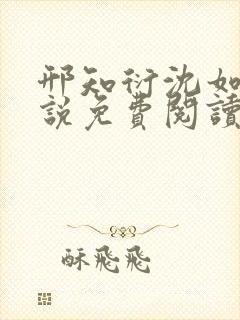 邢知衍沈如
說免費閱讀
酥飛飛